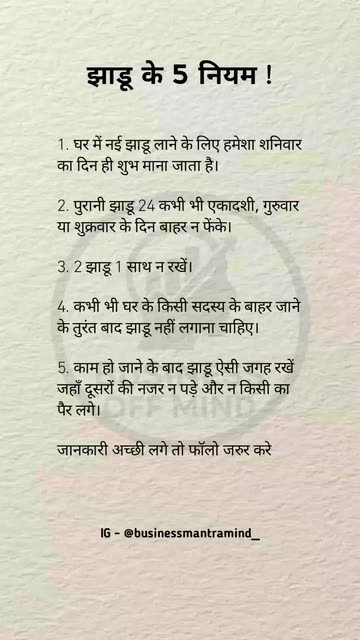 झाडू के 5 नियम !
1. घर में नई झाडू लाने के लिए हमेशा शनिवार
का दिन ही शुभ माना जाता है।
2. पुरानी झाडू 24 कभी भी एकादशी, गुरुवार
या शुक्रवार के दिन बाहर न फेंके।
3. 2 झाडू 1 साथ न रखें।
4. कभी भी घर के किसी सदस्य के बाहर जाने
के तुरंत बाद झाडू नहीं लगाना चाहिए।
5. काम हो जाने के बाद झाडू ऐसी जगह रखें
जहाँ दूसरों की नजर न पड़े और न किसी का
पैर लगे।
OFF MIND
जानकारी अच्छी लगे तो फॉलो जरुर करे
IG - @businessmantramind_